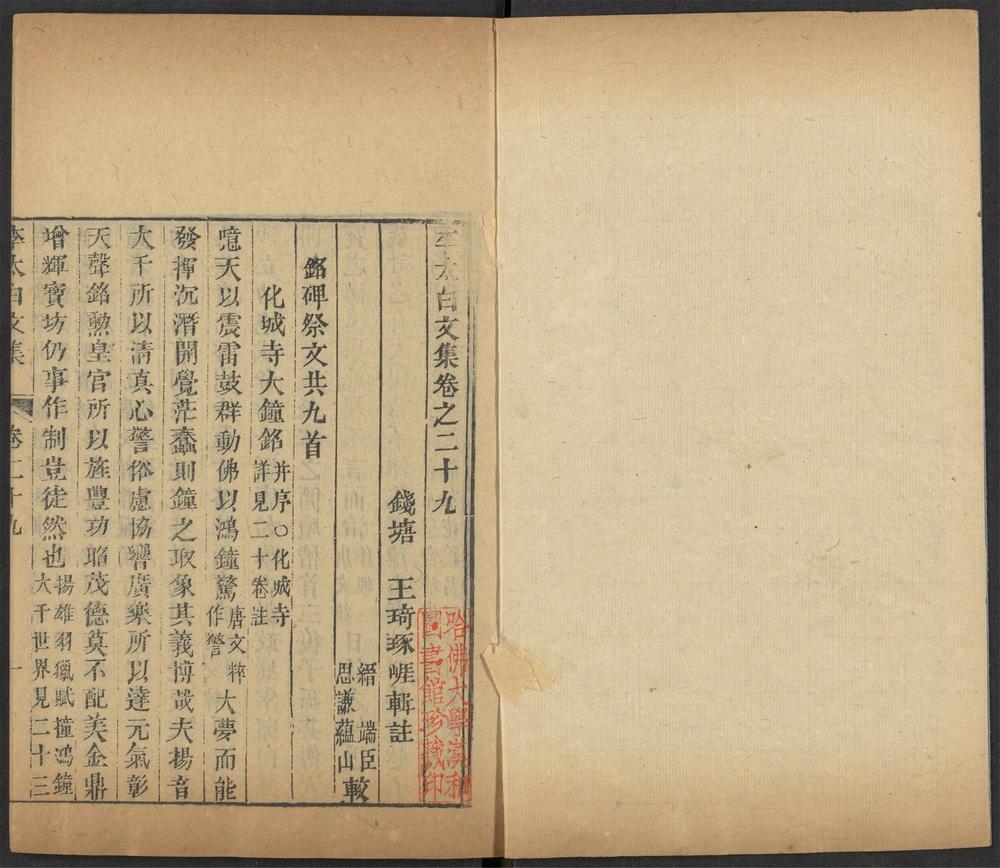 李太白文集卷之二十九
錢塘 王琦琢崖輯註
縉 端臣
思謙蘊山
較
銘碑祭文共九首
化城寺大鐘銘并序〇化城寺詳見二十卷註
噫天以震雷鼓群動佛以鴻鐘驚唐文粹作警大夢而能
發揮沉潛開覺茫蠢則鐘之取象其義博哉夫揚音
大千所以清真心警俗慮協響廣樂所以達元氣彰
天聲銘勲皇宮所以旌豐功昭茂德莫不配美金鼎
增輝寶坊仍事作制豈徒然也揚雄羽獵賦撞鴻鐘大千世界見二十三
李太白文集 卷二十九 一
哈佛大學漢和
圖書館珍藏印